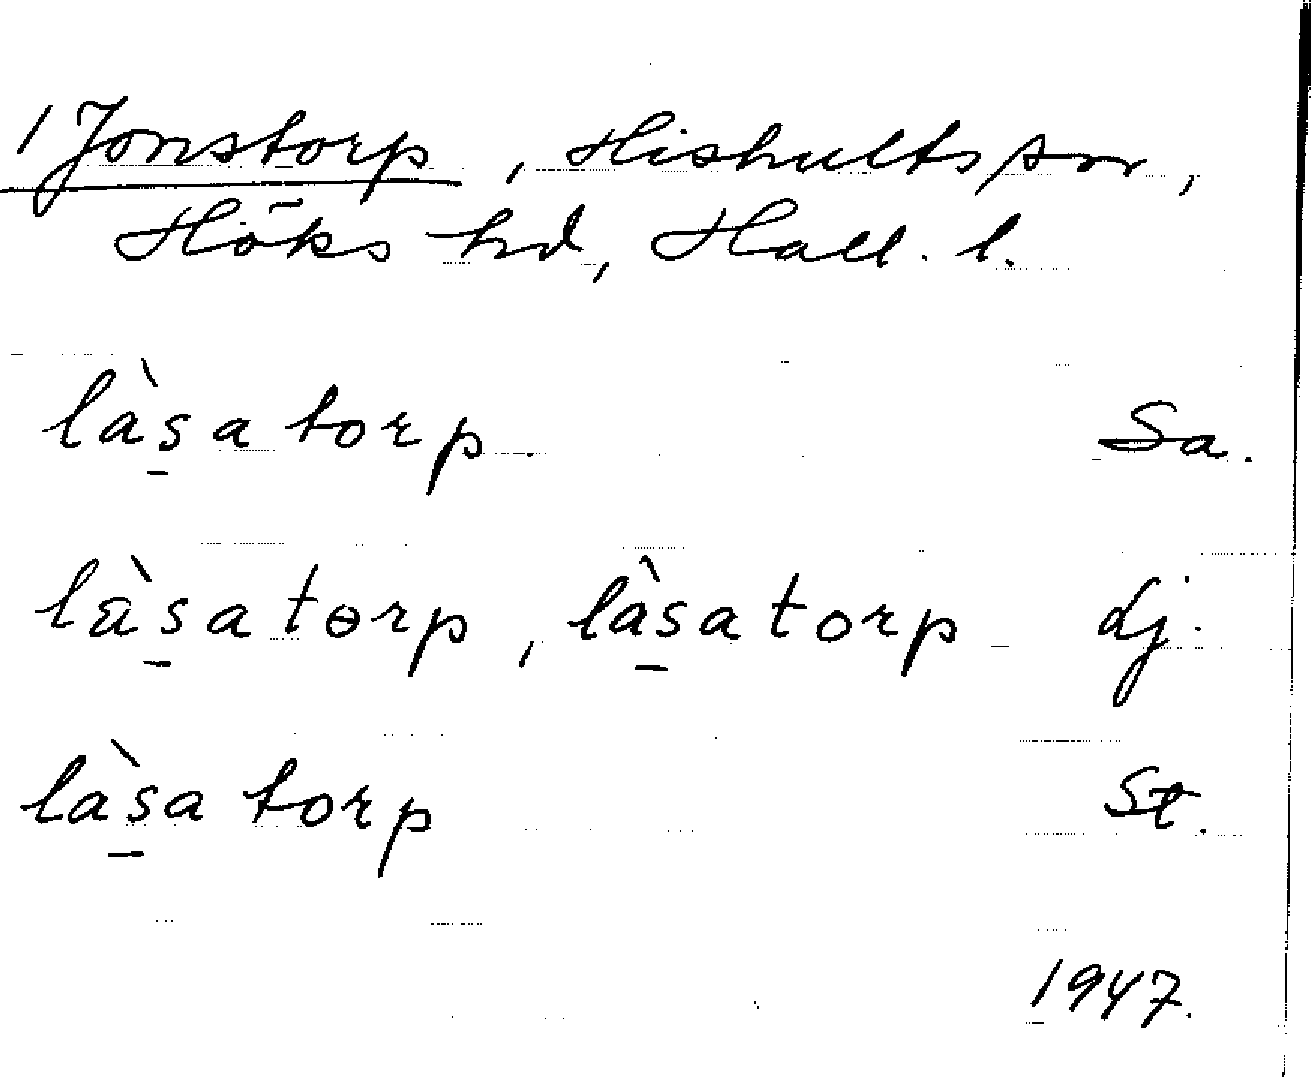 / Jonstorp, Hishults sn,
Höks hd, Hall. l.
là̱satorp Sa.
lὰs̱atɵrp, làs̱atorp Lj.
làs̱a torp St.
1947.